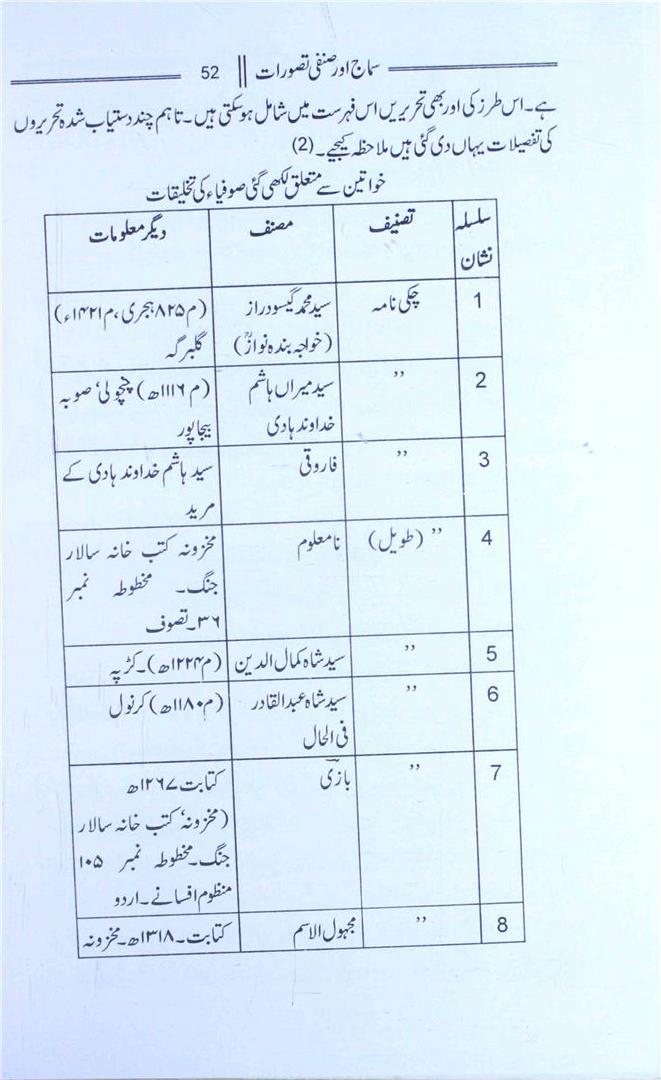 سماج اور صنفی تصورات || 52
ہے۔ اس طرز کی اور بھی تحریریں اس فہرست میں شامل ہوسکتی ہیں۔ تاہم چند دستیاب شدہ تحریروں
کی تفصیلات یہاں دی گئی ہیں ملاحظہ کیجیے۔ (2)
خواتین سے متعلق لکھی گئی صوفیاء کی تخلیقات
سلسلہ نشان تصنیف مصنف دیگر معلومات
1 چکی نامہ سید محمد گیسودراز (م ۸۲۵ ہجری، م ۱۴۲۱ء)
(خواجہ بندہ نوازؒ) گلبرگہ
2 ” سید میراں ہاشم (م ۱۱۱۶ھ) چنچولی، صوبہ
خداوند ہادی بیجاپور
3 ” فاروقی سید ہاشم خداوند ہادی کے
مرید
4 ” (طویل) نامعلوم مخزونہ کتب خانہ سالار
جنگ۔ مخطوطہ نمبر
۳۶۔ تصوف
5 ” سید شاہ کمال الدین (م ۱۲۲۴ھ)۔ کڑپہ
6 ” سید شاہ عبدالقادر (م ۱۱۸۰ھ) کرنول
فی الحال
7 ” بازی کتابت ۱۲۶۷ھ
(مخزونہ، کتب خانہ سالار
جنگ۔ مخطوطہ نمبر ۱۰۵
منظوم افسانے۔ اردو
8 ” مجہول الاسم کتابت۔ ۱۳۱۸ھ۔ مخزونہ